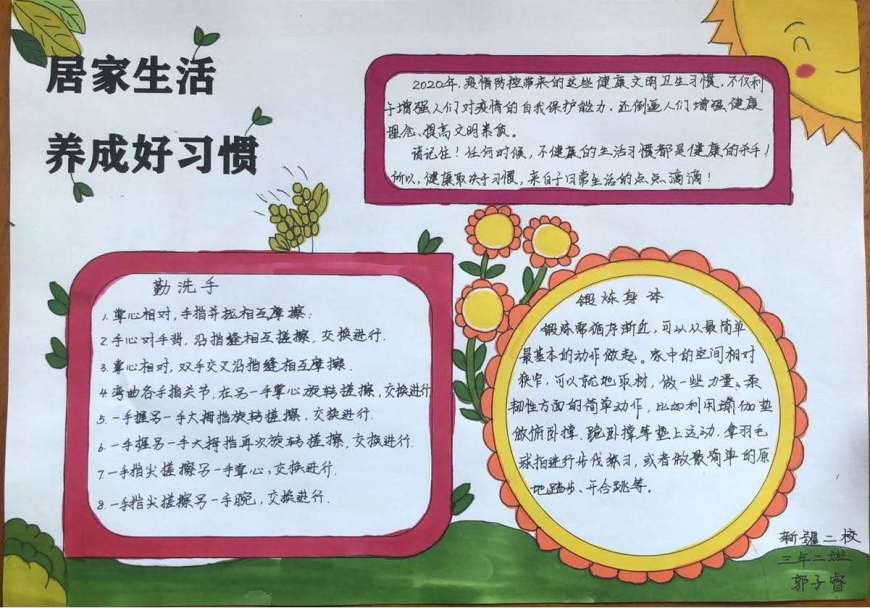 居家生活
养成好习惯
2020年,疫情防控带来的这些健康文明卫生习惯,不仅利
于增强人们对疫情的自我保护能力,还倒逼人们增强健康
理念、提高文明素质。
请记住!任何时候,不健康的生活习惯都是健康的杀手!
所以,健康取决于习惯,来自于日常生活的点点滴滴!
勤洗手
1.掌心相对,手指并拢相互摩擦;
2.手心对手背,沿指缝相互搓擦,交换进行.
3.掌心相对,双手交叉沿指缝相互摩擦.
4.弯曲各手指关节,在另一手掌心旋转搓擦,交换进行
5.一手握另一手大拇指旋转搓擦,交换进行.
6.一手握另一手大拇指再次旋转搓擦,交换进行.
7.一手指尖搓擦另一手掌心,交换进行.
8.一手指尖搓擦另一手腕,交换进行.
锻炼身体
锻炼需循序渐近,可以从最简单
最基本的动作做起。家中的空间相对
狭窄,可以就地取材,做一些力量、柔
韧性方面的简单动作,比如利用瑜伽垫
做俯卧撑、跪卧撑等垫上运动,拿羽毛
球拍进行步伐练习,或者做最简单的原
地踏步、开合跳等。
新疆二校
三年二班
郭子睿